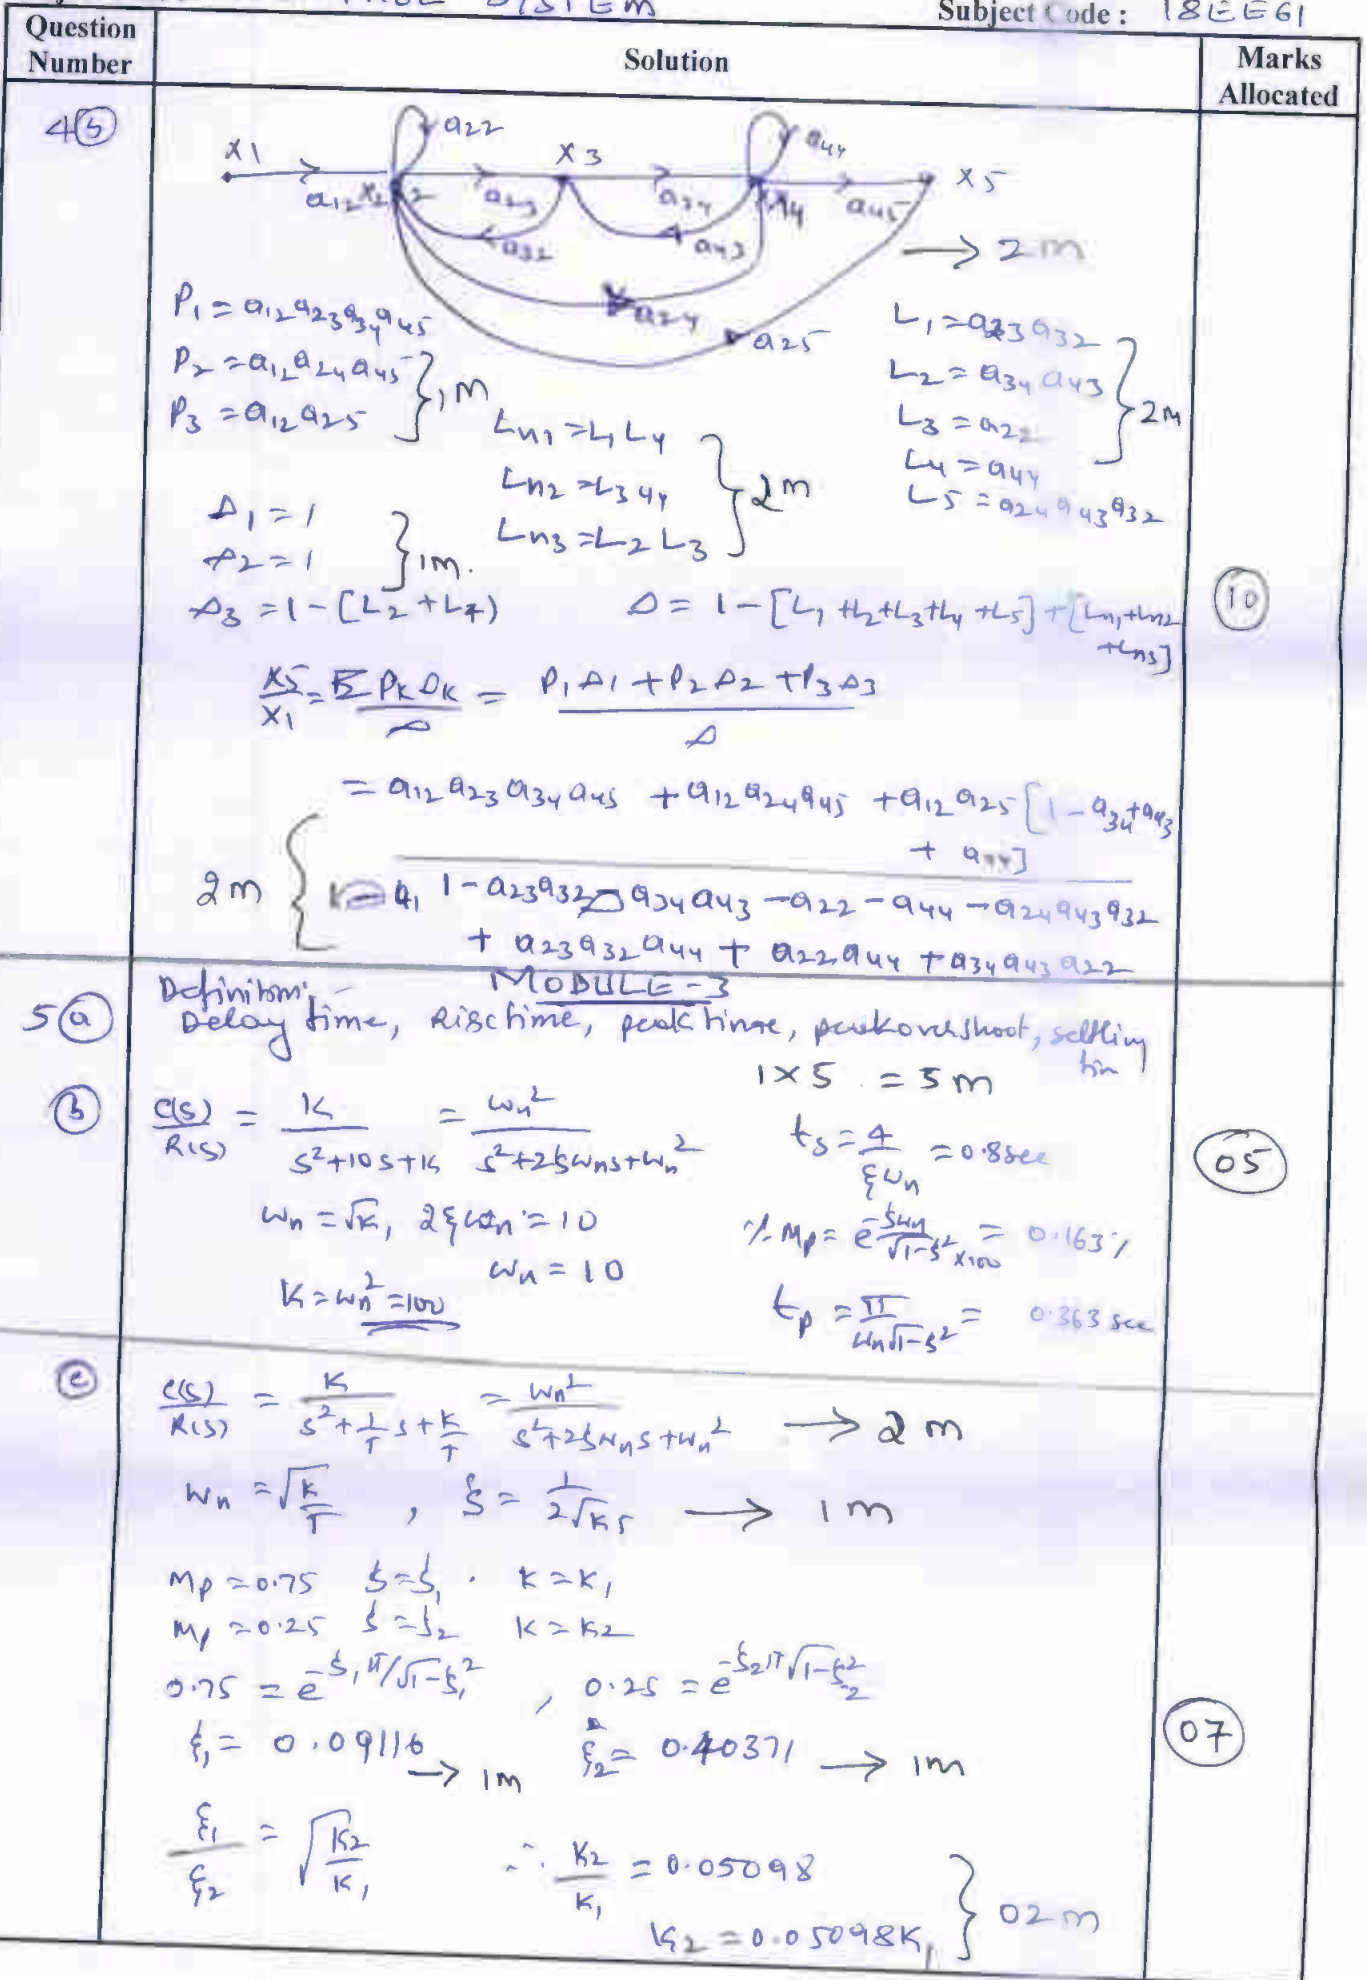 SYSTEM
Subject Code : 18EE61
Question Number
Solution
Marks Allocated
4(b)
x1 a12 x2 a22 a23 x3 a32 a34 a43 x4 a44 a45 x5
a24
a25
→ 2m
P1 = a12 a23 a34 a45
P2 = a12 a24 a45 } 1M
P3 = a12 a25
L1 = a23 a32
L2 = a34 a43
L3 = a22 } 2M
L4 = a44
L5 = a24 a43 a32
Ln1 = L1 L4
Ln2 = L3 L4 } 2m
Ln3 = L2 L3
Δ1 = 1
Δ2 = 1 } 1m.
Δ3 = 1 - [L2 + L4)
Δ = 1 - [L1 + L2 + L3 + L4 + L5] + [Ln1 + Ln2 + Ln3]
10
x5/x1 = Σ PK ΔK / Δ = P1 Δ1 + P2 Δ2 + P3 Δ3 / Δ
= a12 a23 a34 a45 + a12 a24 a45 + a12 a25 [1 - a34 + a43 + a44]
2m { 1 - a23 a32 - a34 a43 - a22 - a44 - a24 a43 a32
+ a23 a32 a44 + a22 a44 + a34 a43 a22
MODULE-3
5(a)
Definitions:-
Delay time, Rise time, peak time, peak overshoot, settling tim
1×5 = 5m
05
(b)
C(s)/R(s) = K / s²+10s+K = ωn² / s²+2ξωns+ωn²
ts = 4/ξωn = 0.8sec
ωn = √K, 2ξωn = 10
% Mp = e^-ξωn/√1-ξ² ×100 = 0.163%
ωn = 10
K = ωn² = 100
tp = π/ωn√1-ξ² = 0.363 sec
(c)
C(s)/R(s) = K / s²+1/T s+K/T = ωn² / s²+2ξωns+ωn² → 2m
ωn = √K/T , ξ = 1/2√KT → 1m
Mp = 0.75 ξ = ξ1 . K = K1
Mp = 0.25 ξ = ξ2 K = K2
0.75 = e^-ξ1π/√1-ξ1² , 0.25 = e^-ξ2π√1-ξ2²
ξ1 = 0.09116 → 1m ξ2 = 0.40371 → 1m
07
ξ1/ξ2 = √K2/K1 ∴ K2/K1 = 0.05098
K2 = 0.05098K1 } 02m